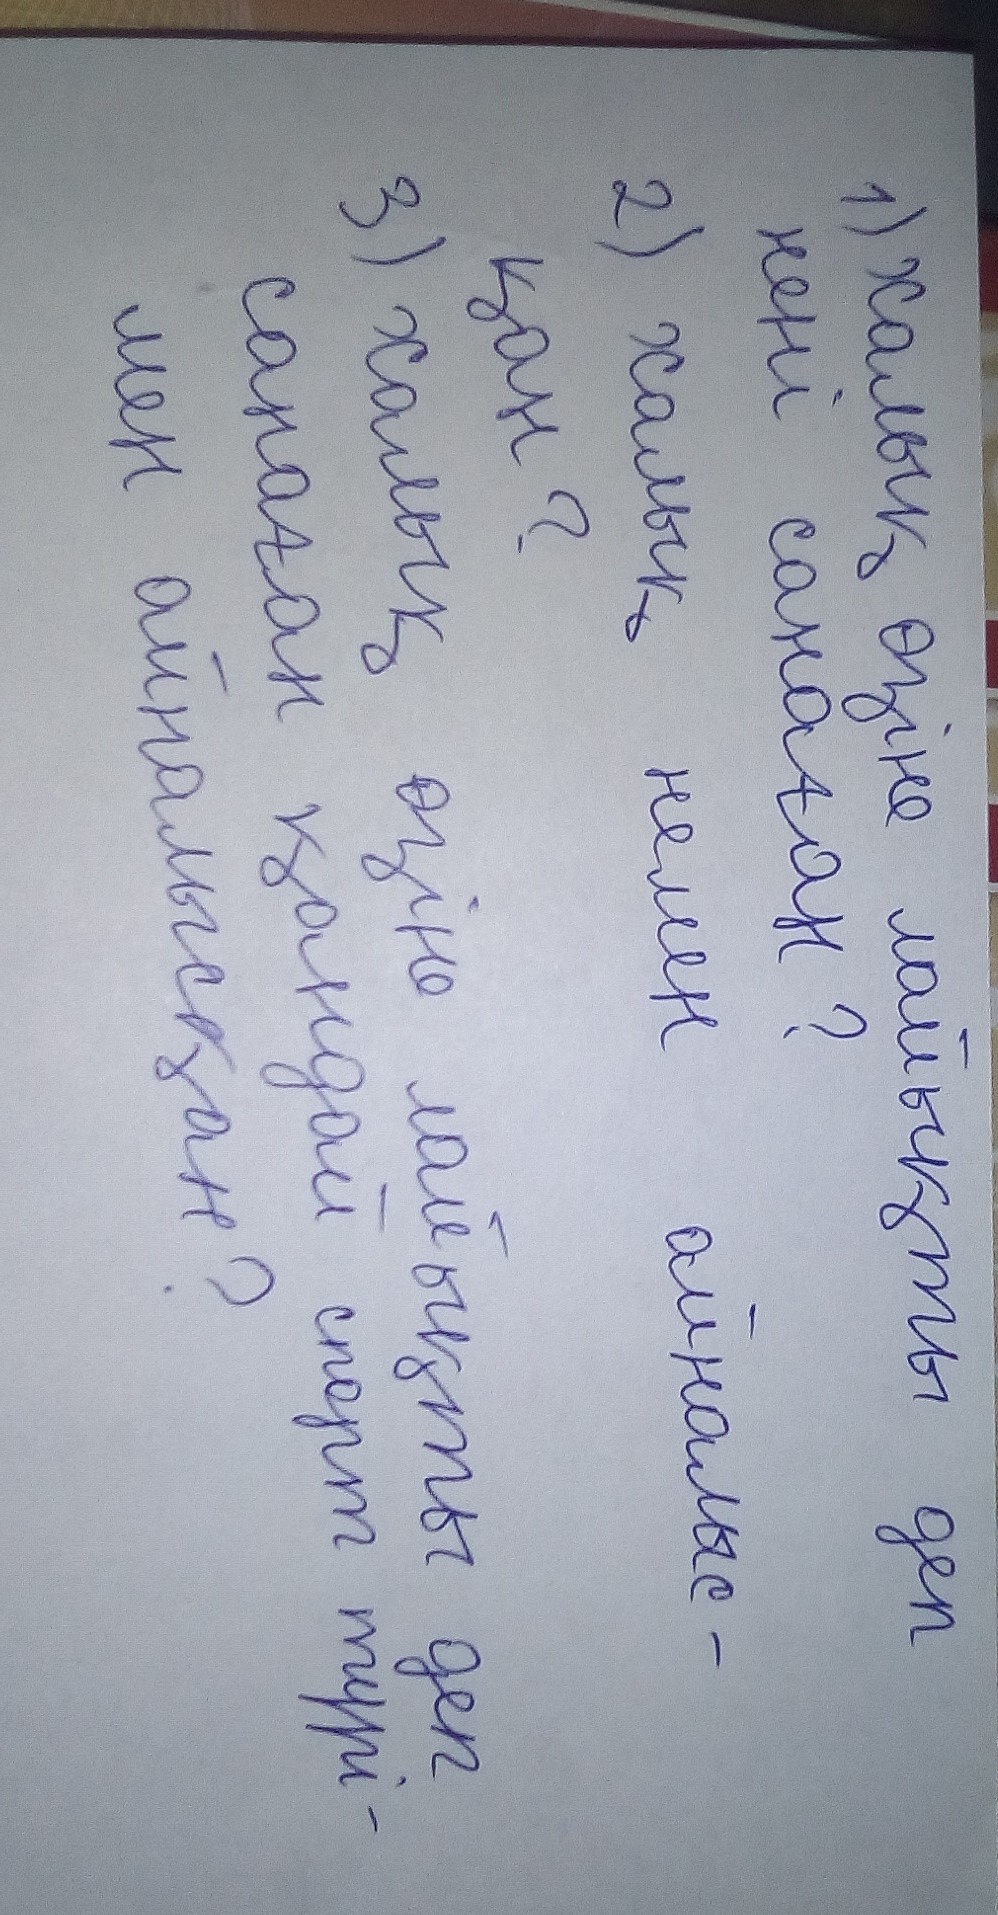 1) халық өзіне лайықты деп
нені санаған?
2) халық немен айналыс-
қан?
3) халық өзіне лайықты деп
санаған қандай спорт түрі-
мен айналысқан?